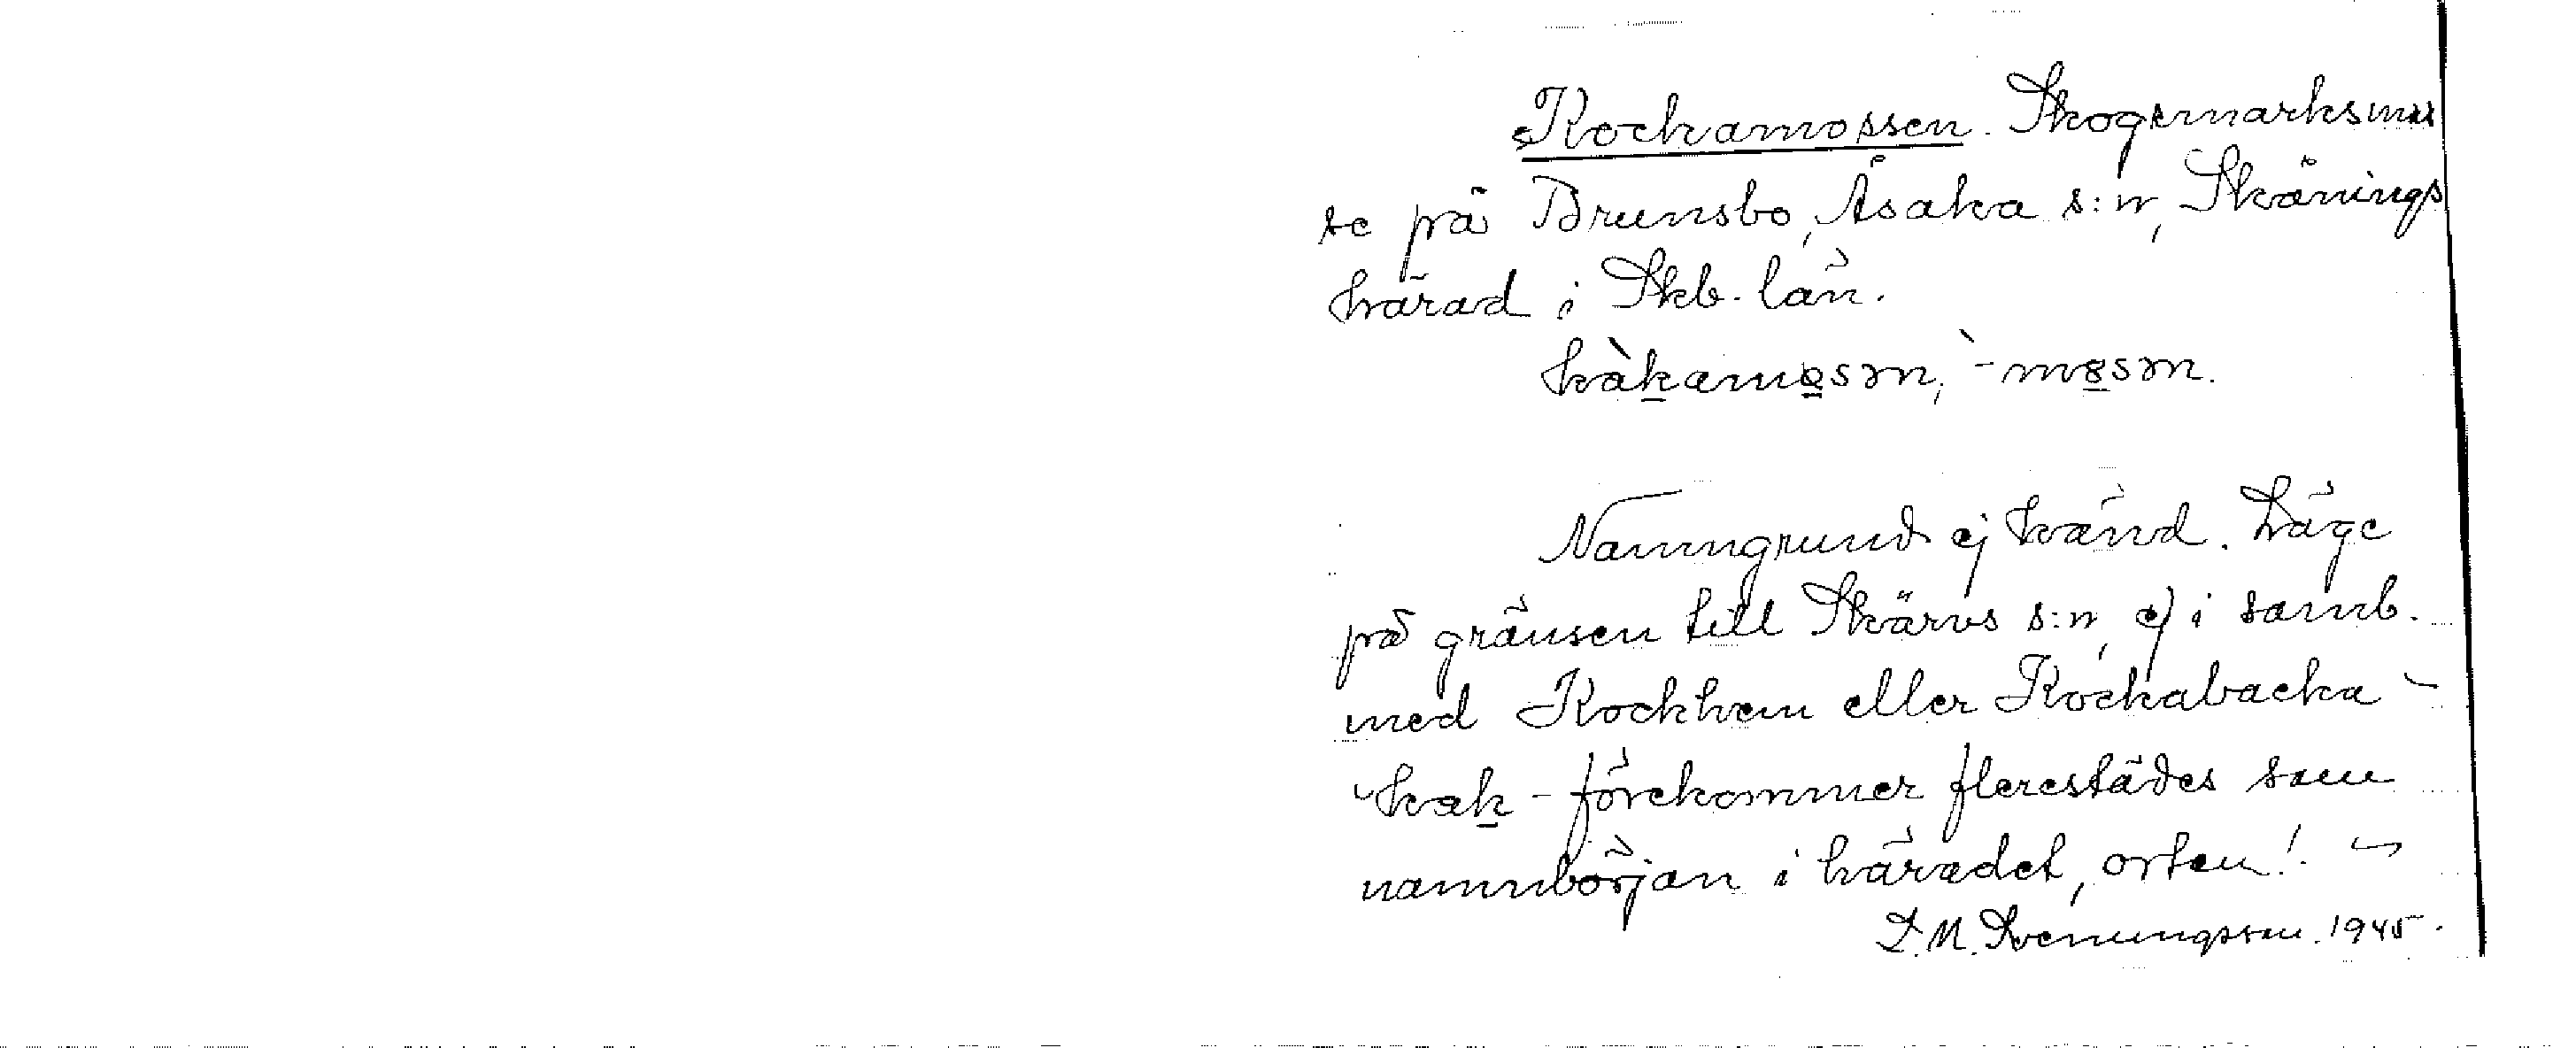 Kockamossen. Skogsmarksmos
se på Brunsbo, Åsaka s:n, Skånings
härad i Skb. län.
kàkamo̲sən, -mo̲sən.
Namngrund ej känd. Läge
på gränsen till Skärvs s:n, ej i samb.
med Kockhem eller Kockabacka -
kak - förekommer flerestädes som
namnbörjan i häradet, orten!
D. M. Svenungsson. 1945.